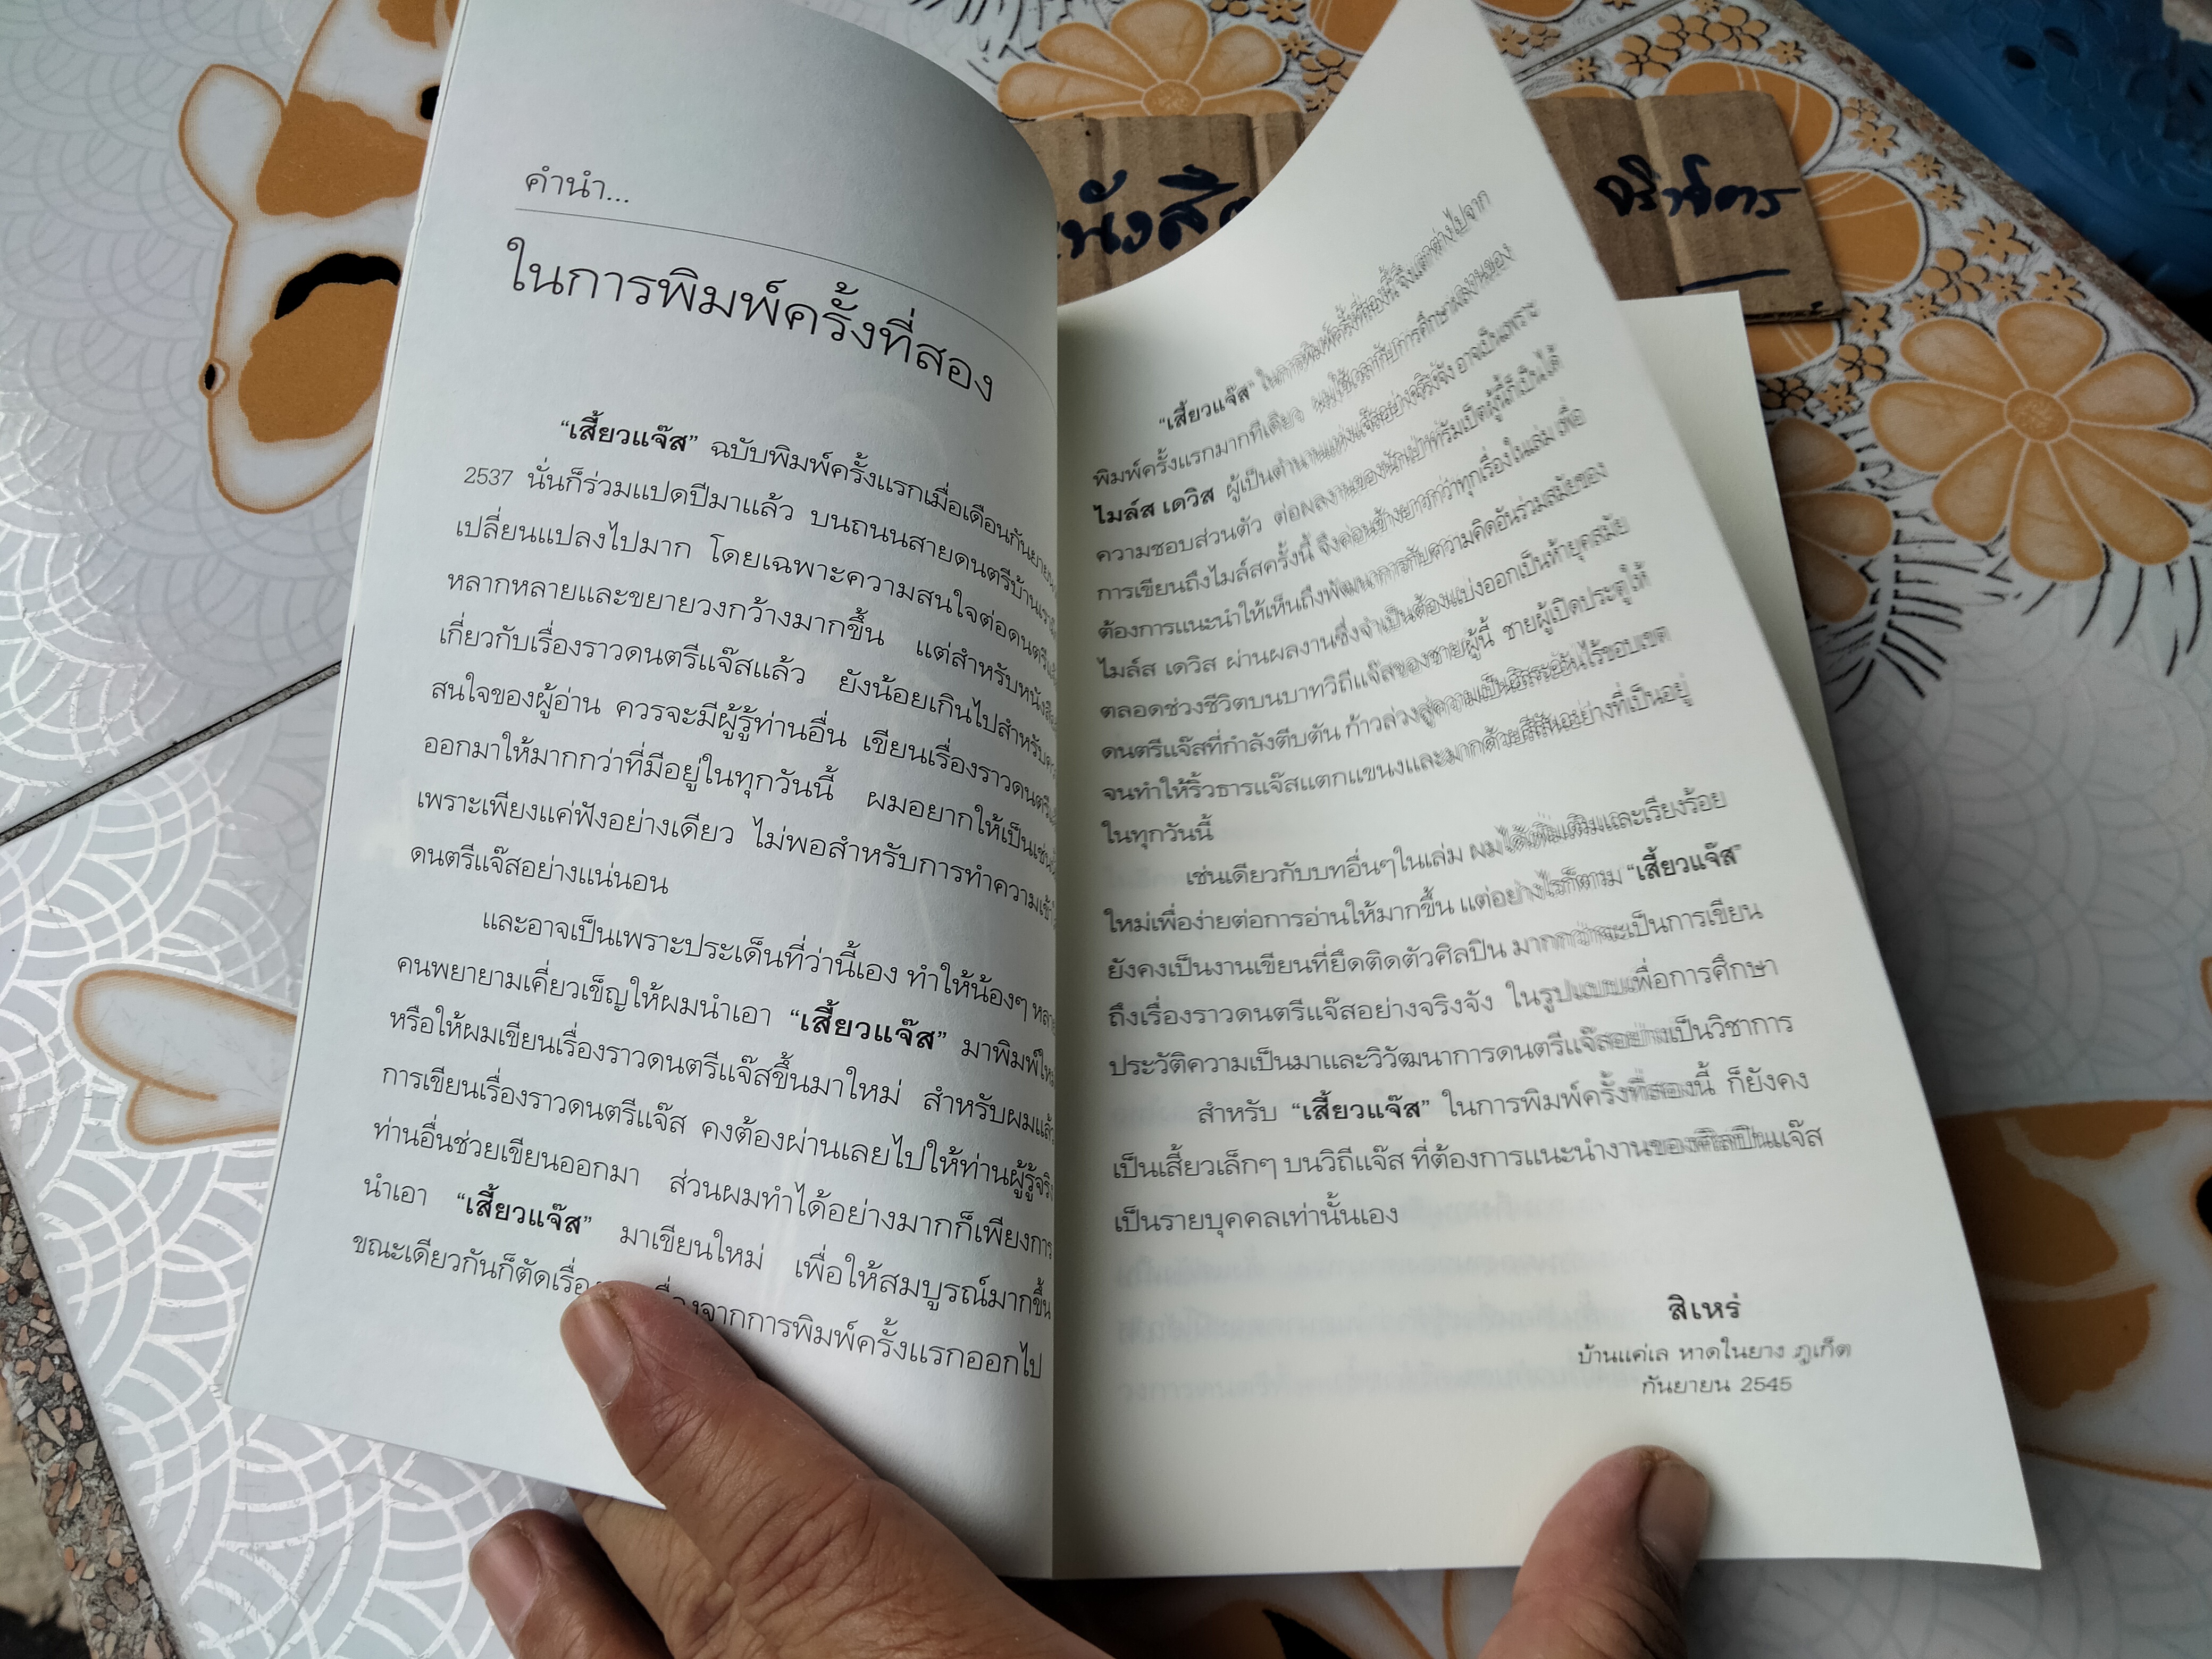 คำนำ...
ในการพิมพ์ครั้งที่สอง
“เสี้ยวแจ๊ส” ฉบับพิมพ์ครั้งแรกเมื่อเดือนกันยายน
2537 นั่นก็ร่วมแปดปีมาแล้ว บนถนนสายดนตรีบ้านเรา
เปลี่ยนแปลงไปมาก โดยเฉพาะความสนใจต่อดนตรี
หลากหลายและขยายวงกว้างมากขึ้น แต่สำหรับหนังสือ
เกี่ยวกับเรื่องราวดนตรีแจ๊สแล้ว ยังน้อยเกินไปสำหรับ
สนใจของผู้อ่าน ควรจะมีผู้รู้ท่านอื่น เขียนเรื่องราวดนตรี
ออกมาให้มากกว่าที่มีอยู่ในทุกวันนี้ ผมอยากให้เป็นเช่น
เพราะเพียงแค่ฟังอย่างเดียว ไม่พอสำหรับการทำความเข้า
ดนตรีแจ๊สอย่างแน่นอน
และอาจเป็นเพราะประเด็นที่ว่านี้เอง ทำให้น้องๆ หลาย
คนพยายามเคี่ยวเข็ญให้ผมนำเอา “เสี้ยวแจ๊ส” มาพิมพ์ใหม่
หรือให้ผมเขียนเรื่องราวดนตรีแจ๊สขึ้นมาใหม่ สำหรับผมแล้ว
การเขียนเรื่องราวดนตรีแจ๊ส คงต้องผ่านเลยไปให้ท่านผู้รู้จริง
ท่านอื่นช่วยเขียนออกมา ส่วนผมทำได้อย่างมากก็เพียงการ
นำเอา “เสี้ยวแจ๊ส” มาเขียนใหม่ เพื่อให้สมบูรณ์มากขึ้น
ขณะเดียวกันก็ตัดเรื่อง จากการพิมพ์ครั้งแรกออกไป
หนังสือ
“เสี้ยวแจ๊ส” ในการพิมพ์ครั้งที่สองนี้ จึงแตกต่างไปจาก
พิมพ์ครั้งแรกมากทีเดียว ผมใช้เวลากับการศึกษาผลงานของ
ไมล์ส เดวิส ผู้เป็นตำนานแห่งแจ๊สอย่างจริงจัง อาจเป็นเพราะ
ความชอบส่วนตัว ต่อผลงานของนักเป่าทรัมเป็ตผู้นี้ก็เป็นได้
การเขียนถึงไมล์สครั้งนี้ จึงค่อนข้างยาวกว่าทุกเรื่องในเล่ม เพื่อ
ต้องการแนะนำให้เห็นถึงพัฒนาการกับความคิดอันร่วมสมัยของ
ไมล์ส เดวิส ผ่านผลงานซึ่งจำเป็นต้องแบ่งออกเป็นห้ายุคสมัย
ตลอดช่วงชีวิตบนบาทวิถีแจ๊สของชายผู้นี้ ชายผู้เปิดประตูให้
ดนตรีแจ๊สที่กำลังตีบตัน ก้าวล่วงสู่ความเป็นอิสระอันไร้ขอบเขต
จนทำให้ริ้วธารแจ๊สแตกแขนงและมากด้วยสีสันอย่างที่เป็นอยู่
ในทุกวันนี้
เช่นเดียวกับบทอื่นๆในเล่ม ผมได้เพิ่มเติมและเรียงร้อย
ใหม่เพื่อง่ายต่อการอ่านให้มากขึ้น แต่อย่างไรก็ตาม “เสี้ยวแจ๊ส”
ยังคงเป็นงานเขียนที่ยึดติดตัวศิลปิน มากกว่าจะเป็นการเขียน
ถึงเรื่องราวดนตรีแจ๊สอย่างจริงจัง ในรูปแบบเพื่อการศึกษา
ประวัติความเป็นมาและวิวัฒนาการดนตรีแจ๊สอย่างเป็นวิชาการ
สำหรับ “เสี้ยวแจ๊ส” ในการพิมพ์ครั้งที่สองนี้ ก็ยังคง
เป็นเสี้ยวเล็กๆ บนวิถีแจ๊ส ที่ต้องการแนะนำงานของศิลปินแจ๊ส
เป็นรายบุคคลเท่านั้นเอง
สิเหร่
บ้านแค่เล หาดในยาง ภูเก็ต
กันยายน 2545